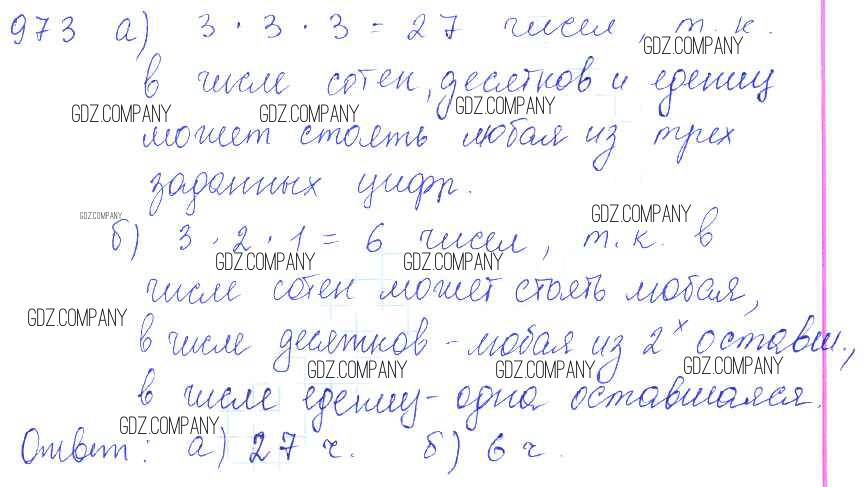 973 а) 3 · 3 · 3 = 27 чисел, т. к.
GDZ.COMPANY
в числе сотен, десятков и едениц
GDZ.COMPANY GDZ.COMPANY GDZ.COMPANY
может стоять любая из трех
заданных цифр.
GDZ.COMPANY GDZ.COMPANY
б) 3 · 2 · 1 = 6 чисел, т. к. в
GDZ.COMPANY GDZ.COMPANY
числе сотен может стоять любая,
GDZ.COMPANY
в числе десятков - любая из 2х оставш.,
GDZ.COMPANY GDZ.COMPANY GDZ.COMPANY
в числе едениц - одна оставшаяся.
GDZ.COMPANY
Ответ: а) 27 ч. б) 6 ч.